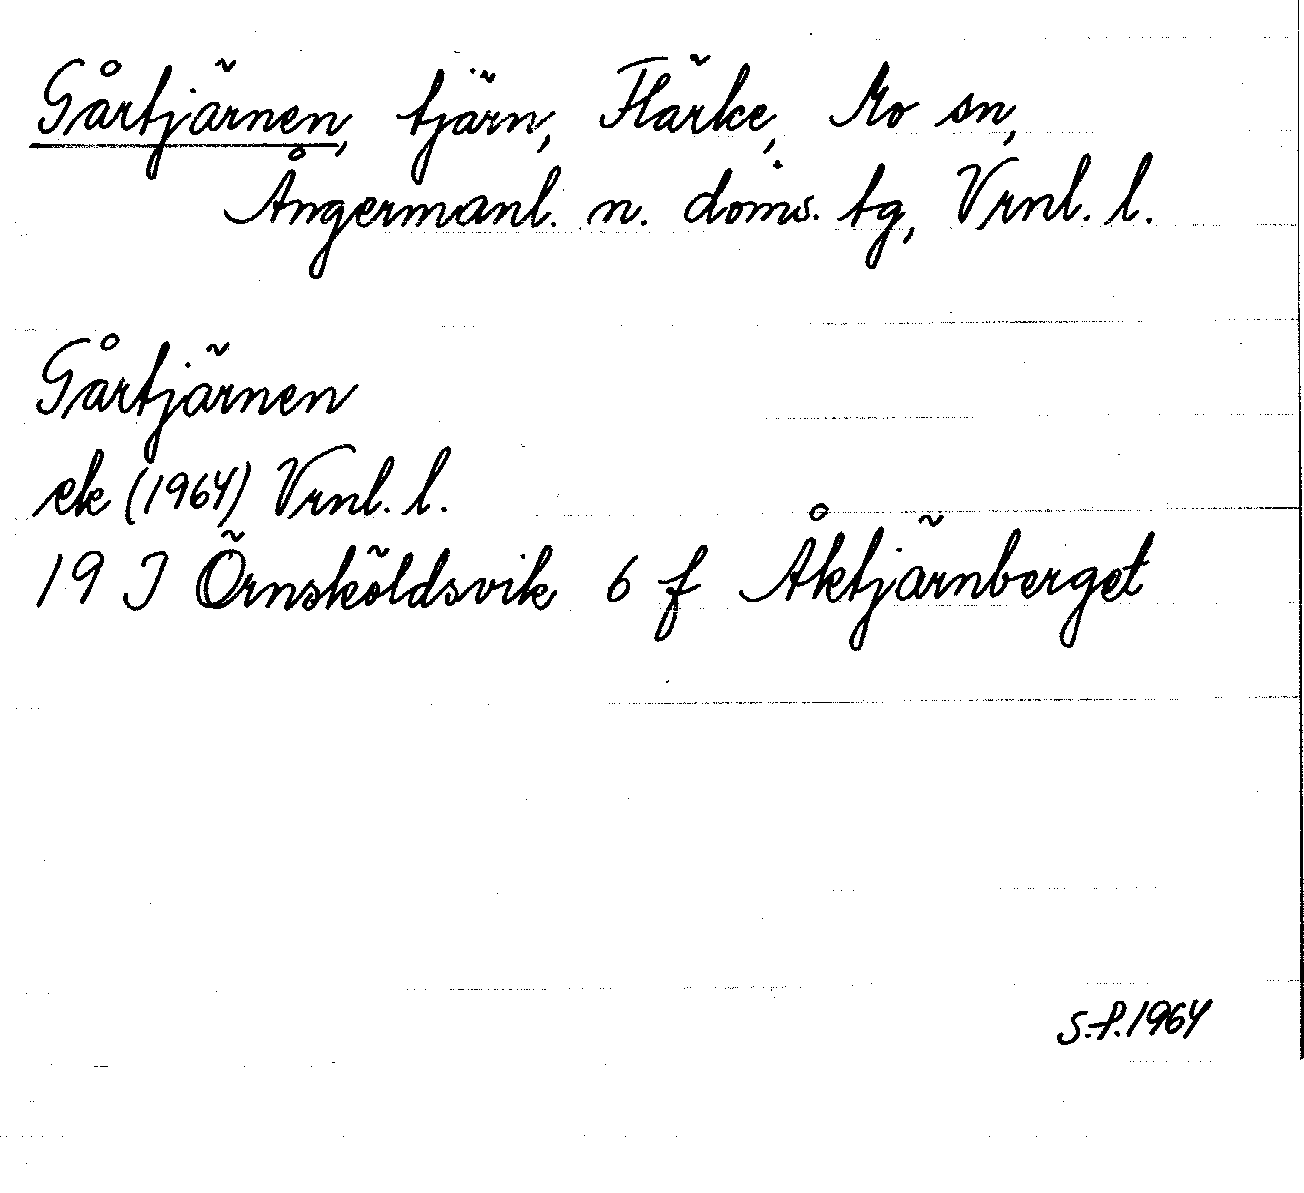 Gårtjärnen, tjärn, Flärke, Mo sn,
Ångermanl. n. doms. tg, Vrnl. l.
Gårtjärnen
ek (1964) Vrnl. l.
19 J Örnsköldsvik 6 f Åktjärnberget
S.P. 1964